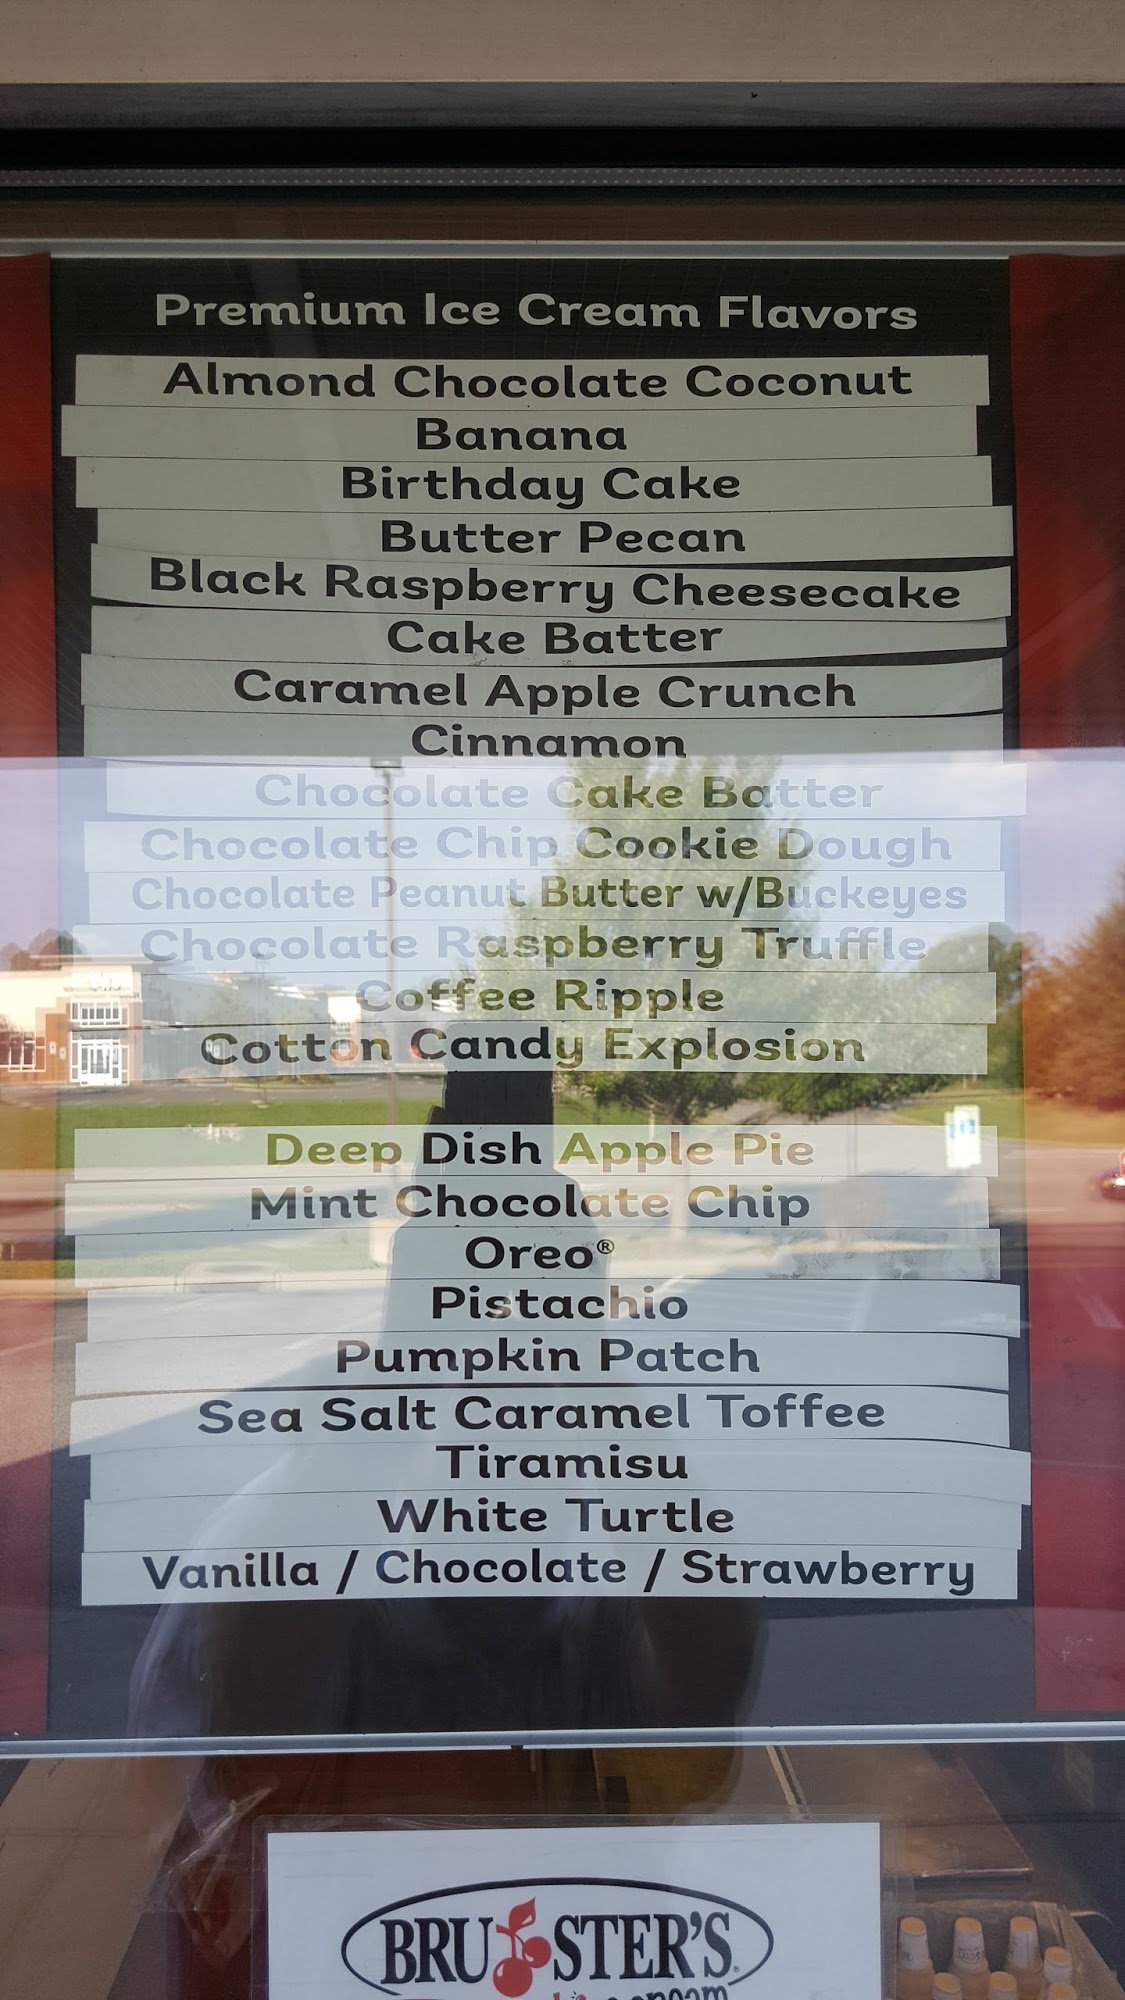 Premium Ice Cream Flavors
Almond Chocolate Coconut
Banana
Birthday Cake
Butter Pecan
Black Raspberry Cheesecake
Cake Batter
Caramel Apple Crunch
Cinnamon
Chocolate Cake Batter
Chocolate Chip Cookie Dough
Chocolate Peanut Butter w/Buckeyes
Chocolate Raspberry Truffle
Coffee Ripple
Cotton Candy Explosion
Deep Dish Apple Pie
Mint Chocolate Chip
Oreo®
Pistachio
Pumpkin Patch
Sea Salt Caramel Toffee
Tiramisu
White Turtle
Vanilla / Chocolate / Strawberry
BRUSTER'S